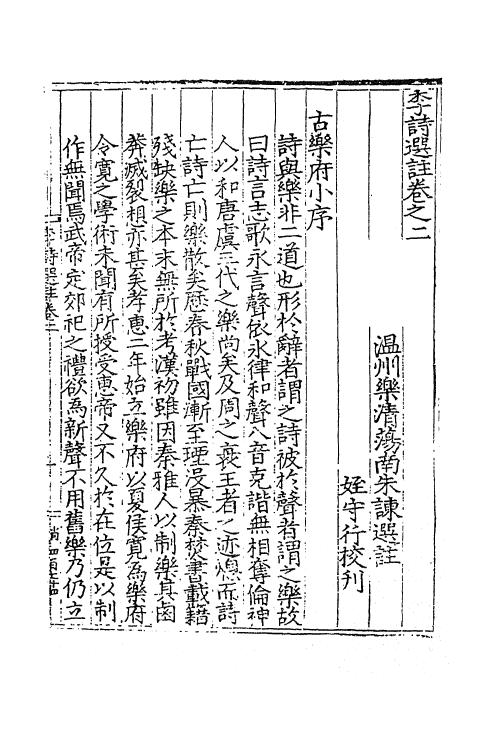 李詩選註卷之二
溫州樂清蕩南朱諫選註
姪守行校刋
古樂府小序
詩與樂非二道也形於辭者謂之詩被於聲者謂之樂故
曰詩言志歌永言聲依永律和聲八音克諧無相奪倫神
人以和唐虞三代之樂尚矣及周之衰王者之迹熄而詩
亡詩亡則樂散矣歷春秋戰國漸至堙沒暴秦焚書載籍
殘缺樂之本末無所於考漢初雖因秦雅人以制樂其鹵
莽滅裂相亦甚矣孝惠二年始立樂府以夏侯寬為樂府
令寬之學術未聞有所授受惠帝又不久於在位是以制
作無聞焉武帝定郊祀之禮欲為新聲不用舊樂乃仍立
李詩選註卷二